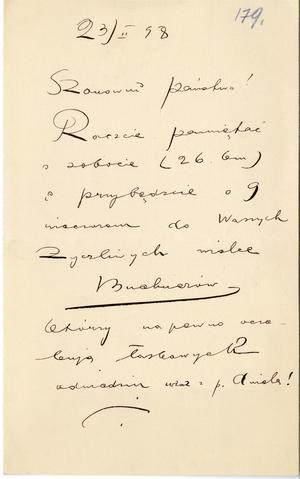 179.
23/II 98
Szanowni państwo!
Raczcie pamiętać
o sobocie (26. bm)
i przybądźcie o 9
wieczorem do Waszych
Życzliwych wielce
Buchnerów
którzy na pewno ocze-
kują łaskawych
odwiedzin wraz z p. Anielą!